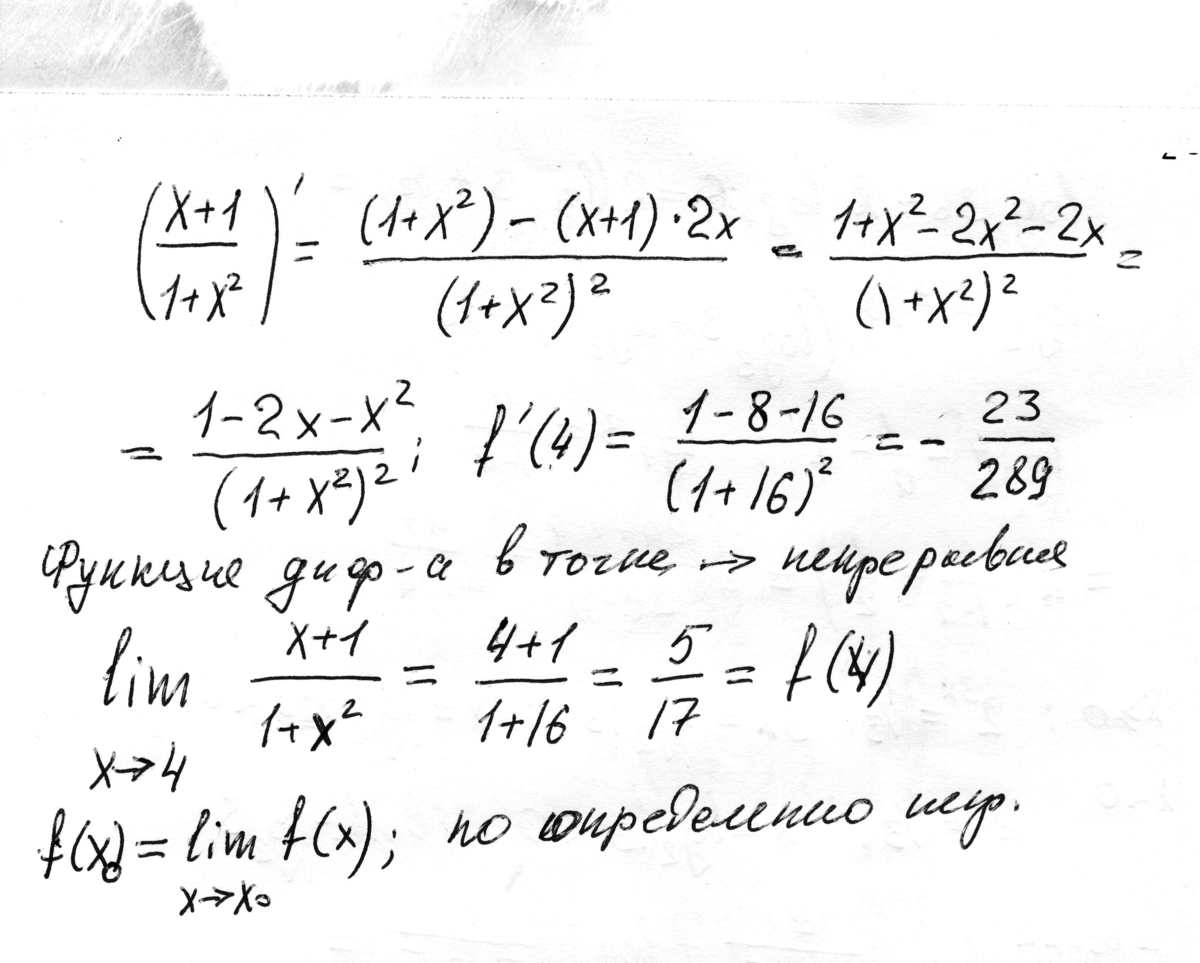 (x+1 / 1+x²)' = (1+x²) − (x+1)·2x / (1+x²)² = 1+x²−2x²−2x / (1+x²)² =
= 1−2x−x² / (1+x²)² ; f'(4) = 1−8−16 / (1+16)² = − 23 / 289
Функция диф-а в точке → непрерывная
lim x→4 x+1 / 1+x² = 4+1 / 1+16 = 5 / 17 = f(4)
f(x₀) = lim x→x₀ f(x); по определению непр.